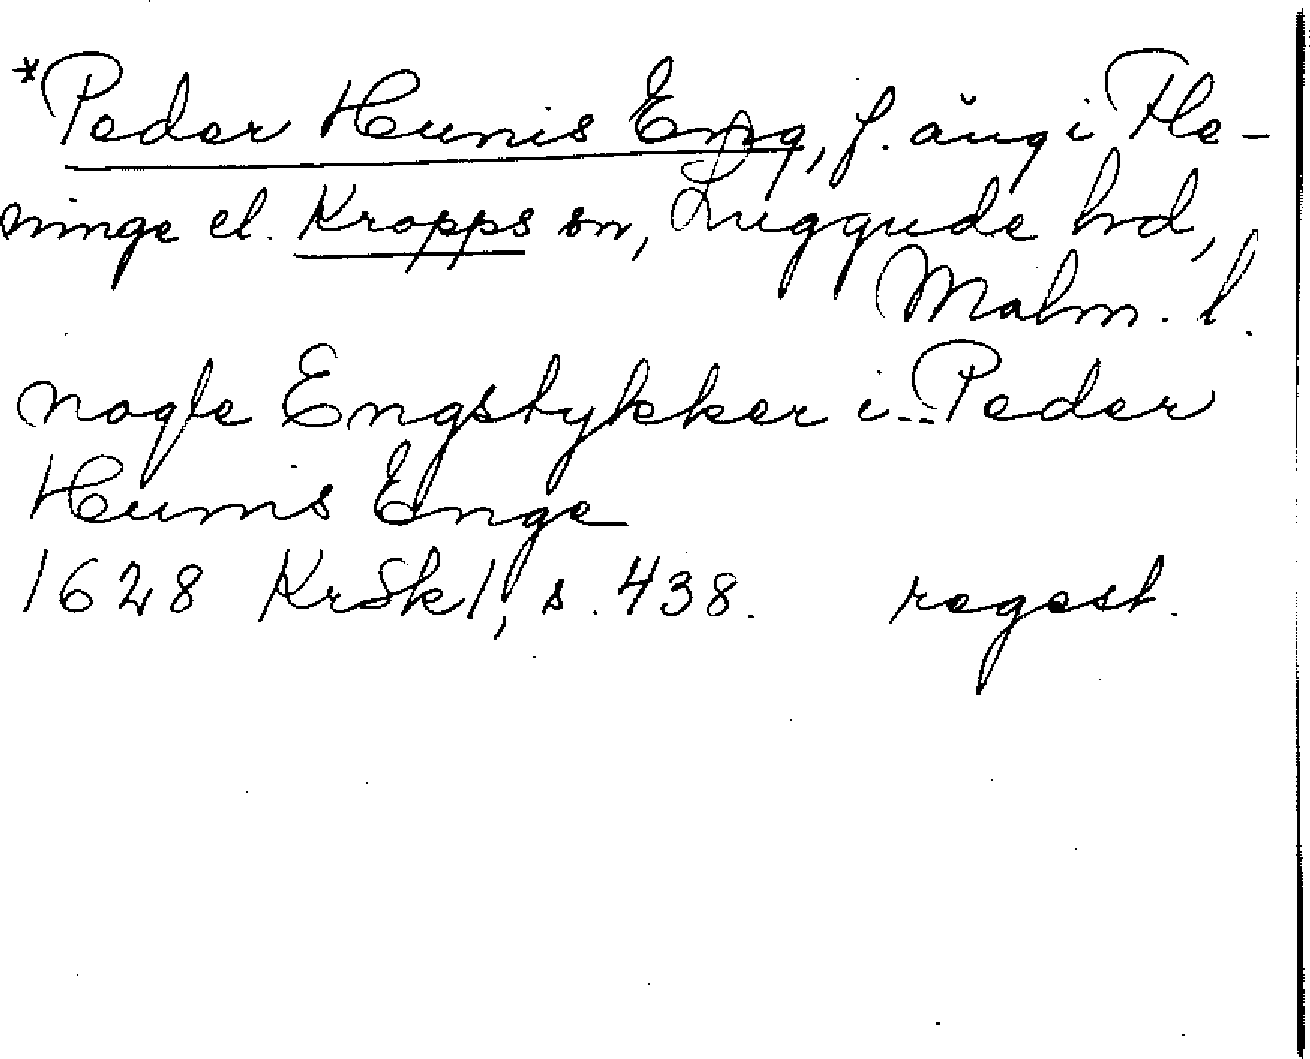 *Peder Hunis Eng, f. äng i Fle-
ninge el. Kropps sn, Luggude hd,
Malm. l.
nogle Engstykker i Peder
Hunis Enge
1628 KrSk 1, s. 438. regest.